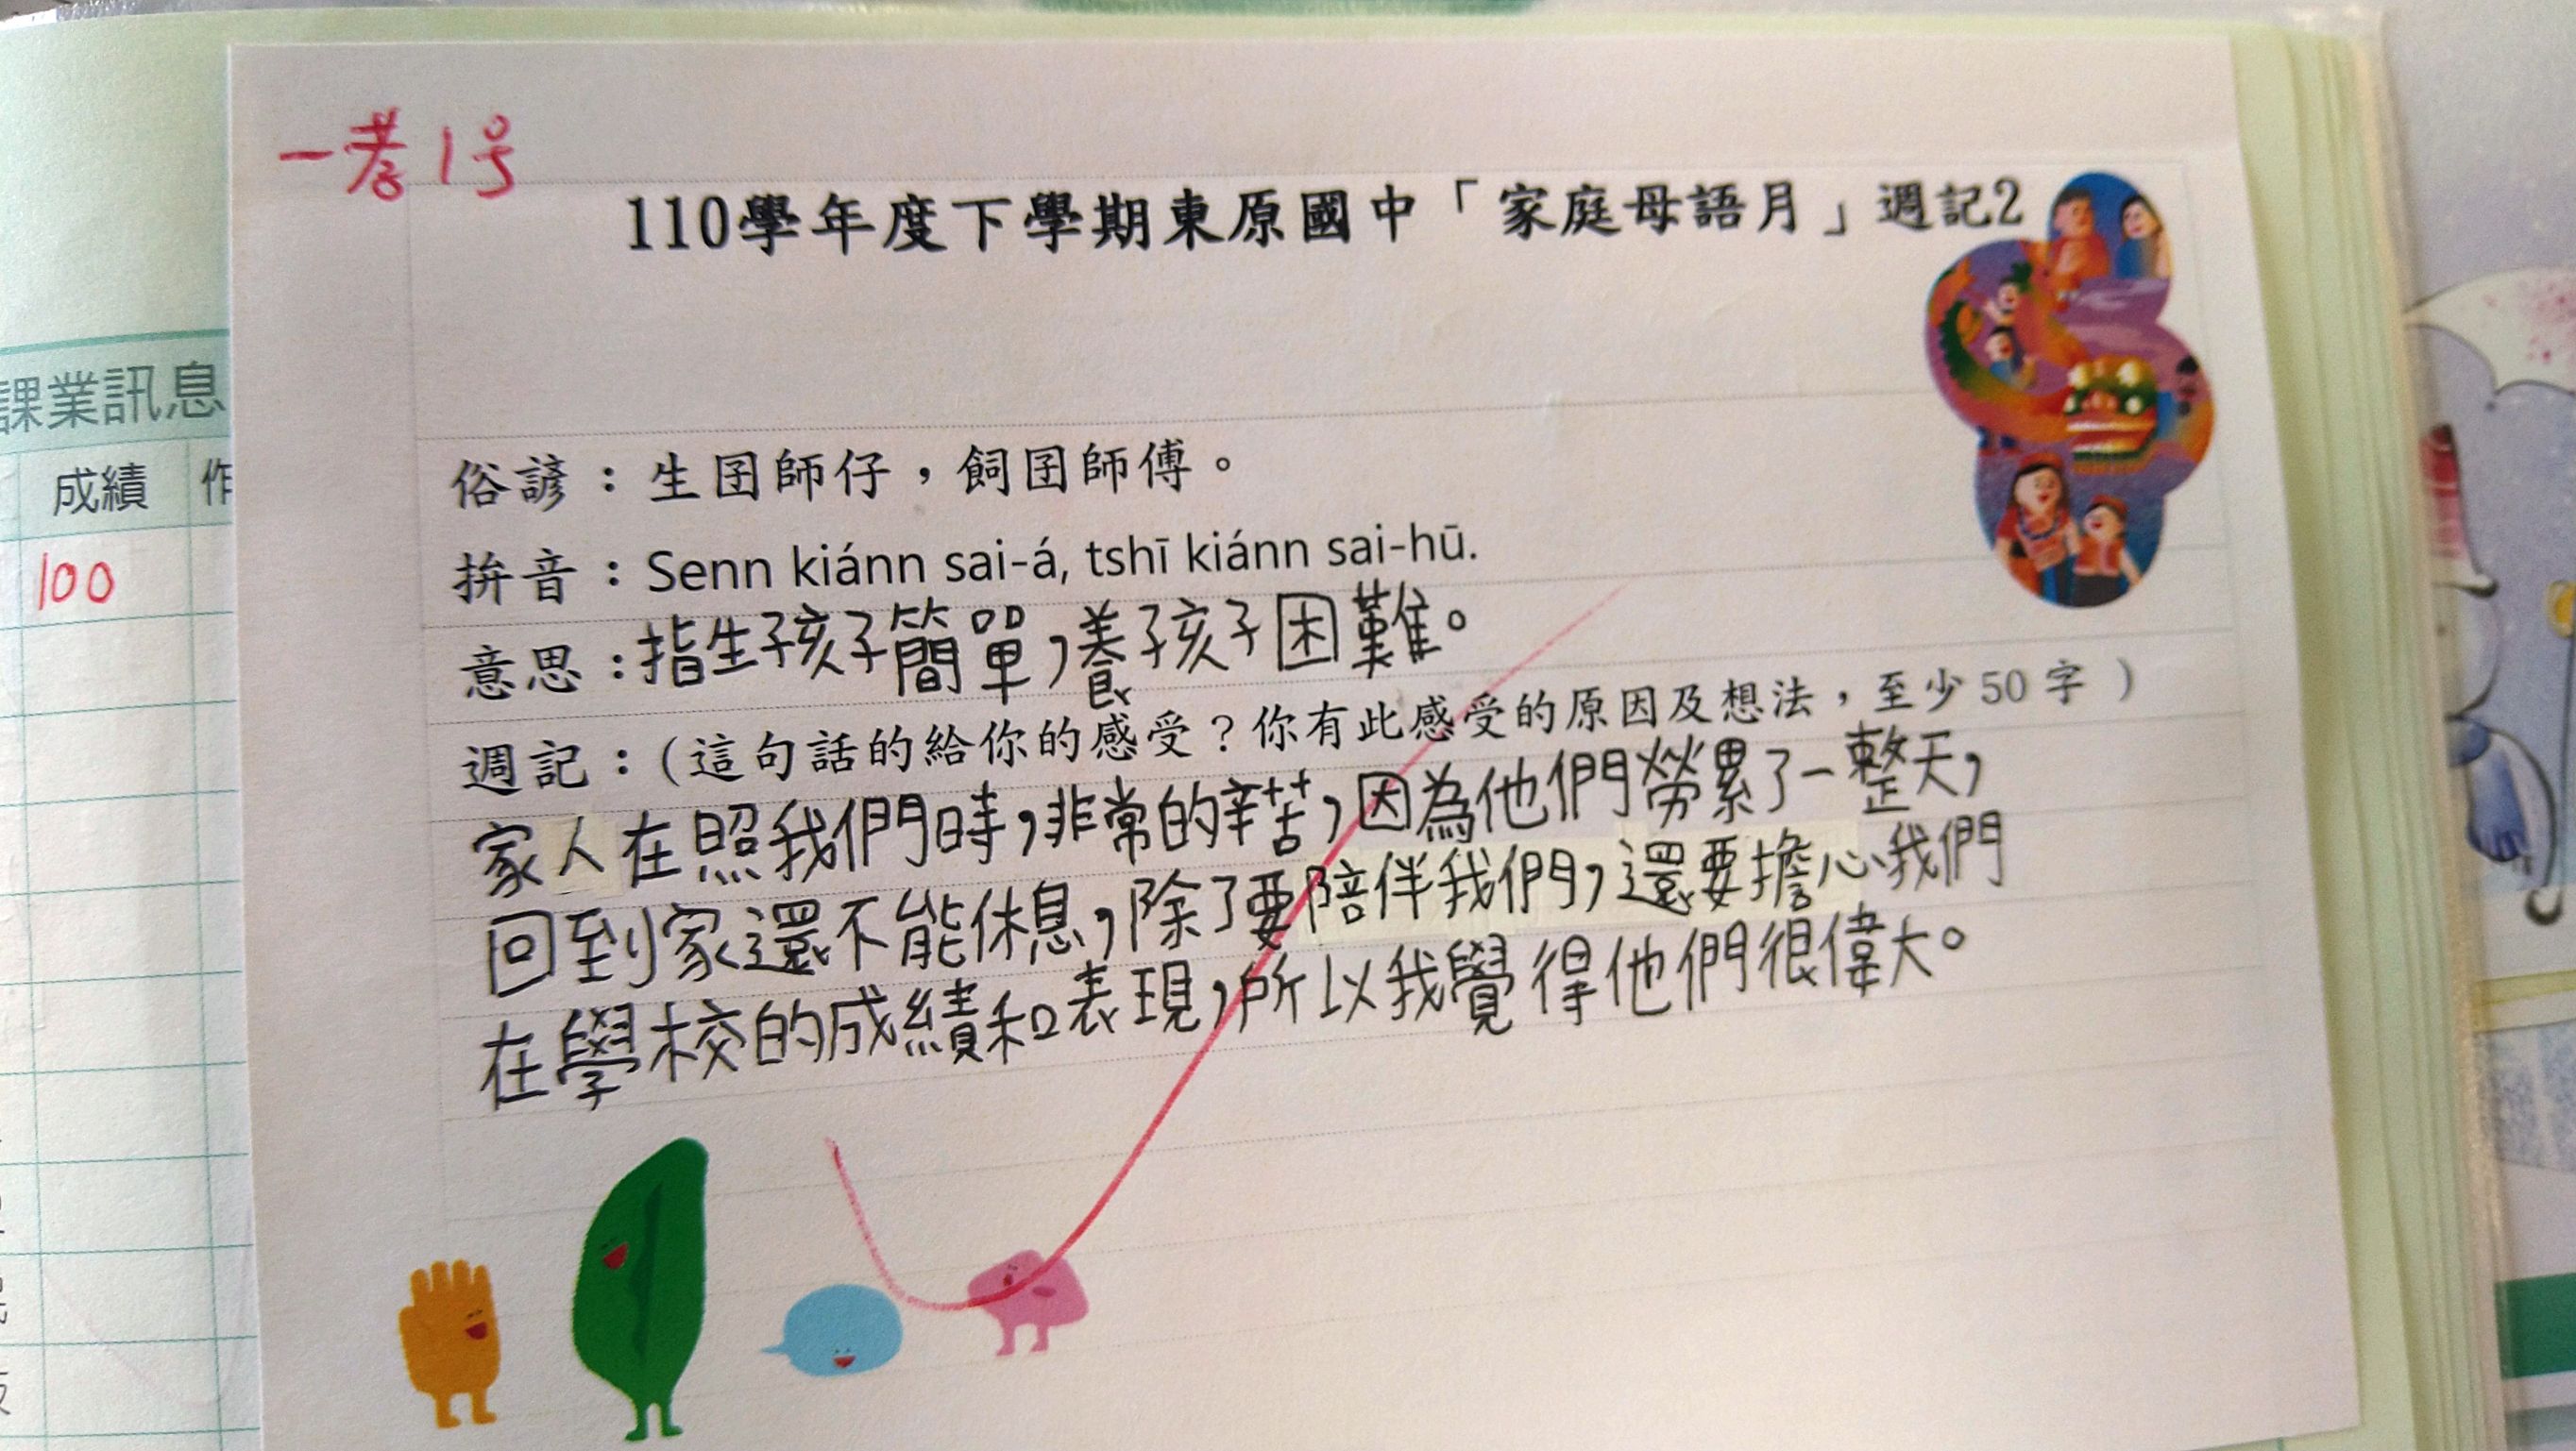 一孝1号
110學年度下學期東原國中「家庭母語月」週記2
課業訊息
成績 作
100
俗諺：生囝師仔，飼囝師傅。
拚音：Senn kiánn sai-á, tshī kiánn sai-hū.
意思：指生孩子簡單，養孩子困難。
週記：（這句話的給你的感受？你有此感受的原因及想法，至少50字）
家人在照我們時，非常的辛苦，因為他們勞累了一整天，
回到家還不能休息，除了要陪伴我們，還要擔心我們
在學校的成績和表現，所以我覺得他們很偉大。